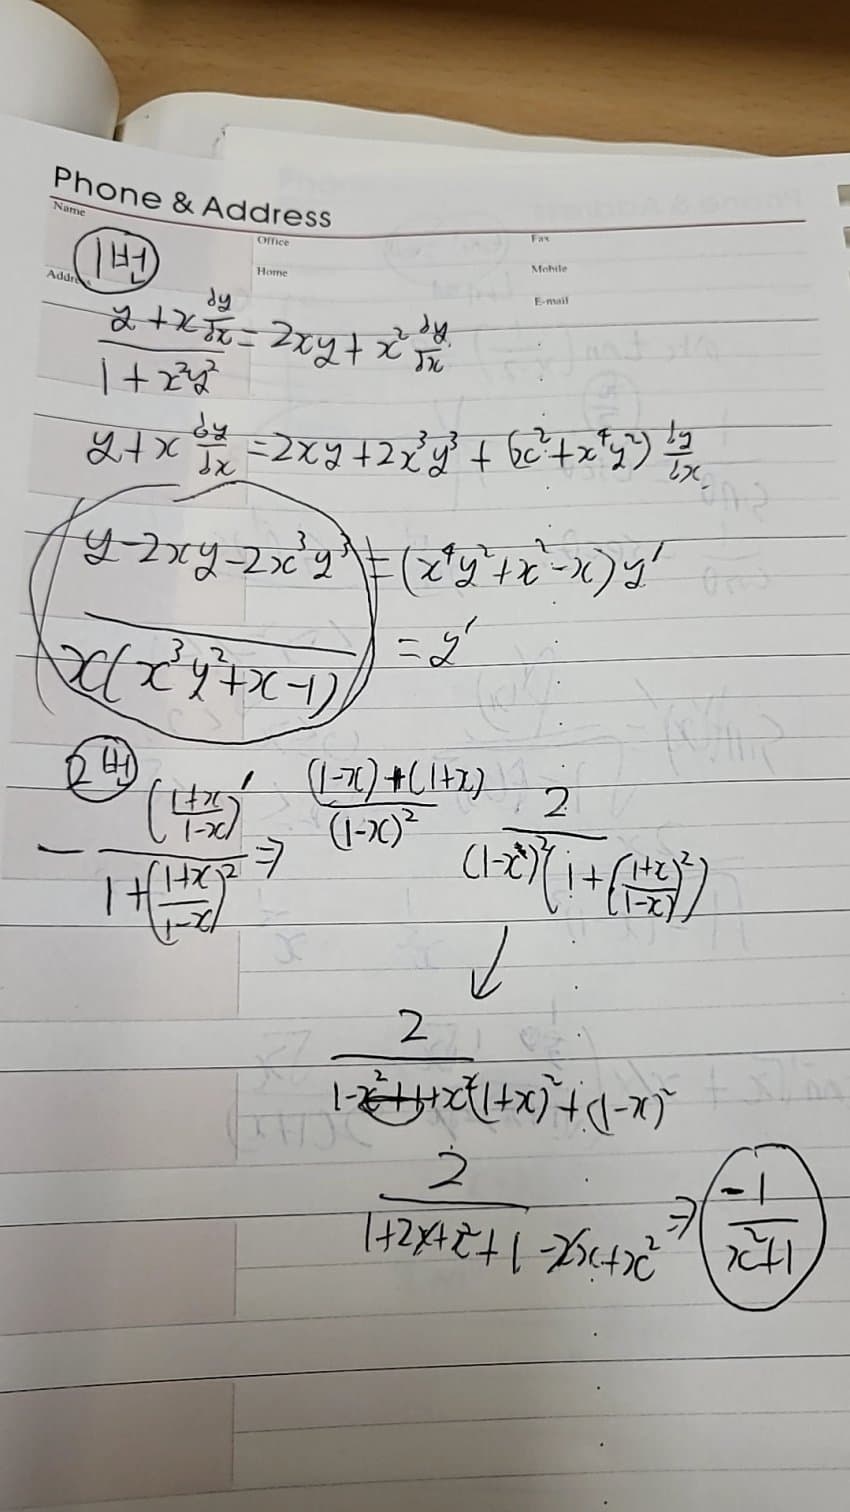 Phone & Address
Name
Office
Fax
1번
Address
Home
Mobile
E-mail
(y + x dy/dx)/(1 + x²y²) = 2xy + x² dy/dx
y + x dy/dx = 2xy + 2x³y³ + (x² + x⁴y²) dy/dx
y - 2xy - 2x³y³ = (x⁴y² + x² - x)y′
x(x³y² + x - 1) = y′
2번
- ((1+x)/(1-x))′ / (1 + ((1+x)/(1-x))²) ⇒ ((1-x) + (1+x))/(1-x)² 2/((1-x)²(1 + ((1+x)/(1-x))²))
↓
2
(1+x)² + (1-x)²
2/(1+2x+x²+1-2x+x²) ⇒ -1/(x²+1)